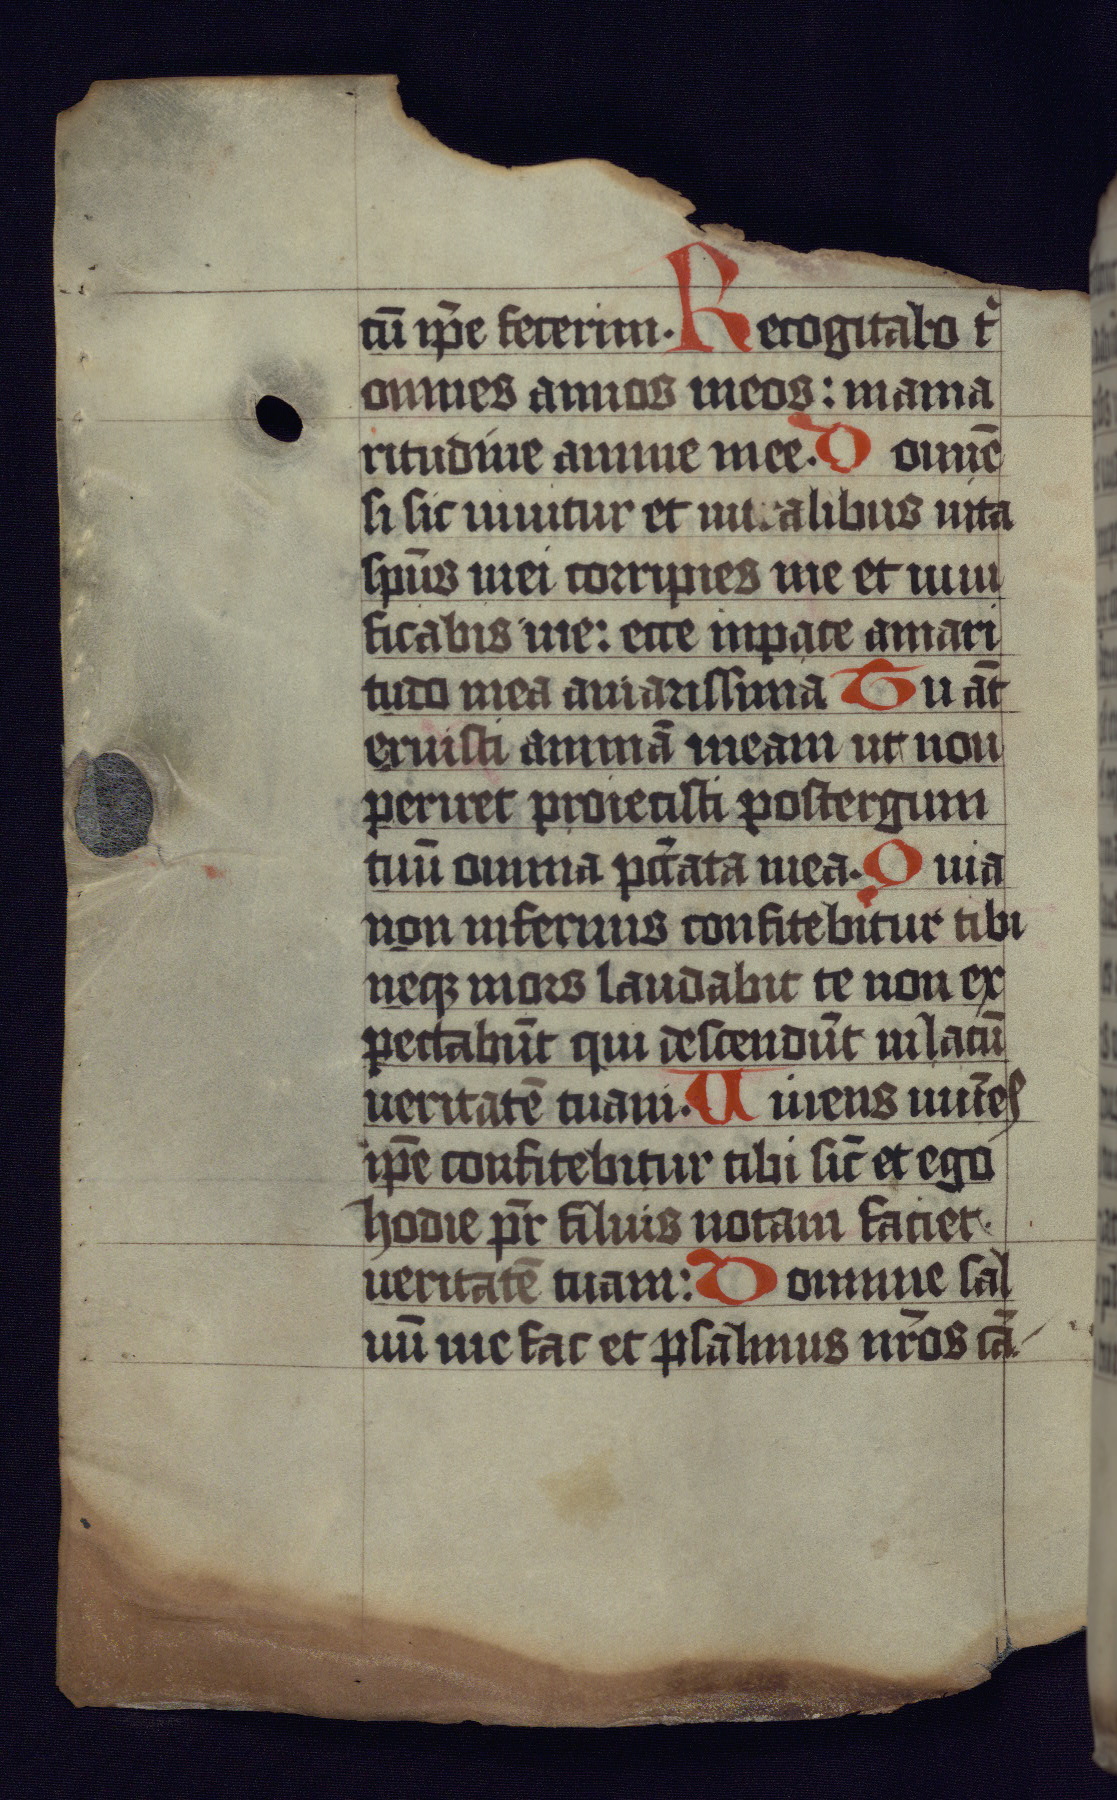 cū ip̄e fecerim. Recogitabo t
omnes annos meos: inama
ritudine anime mee. Domine
si sic uiuitur et in talibus uita
sp̄us mei corripies me et uiui
ficabis me: ecce inpace amari
tudo mea amarissima Tu āt
eruisti animā meam ut non
periret proiecisti postergum
tuū omnia pc̄cata mea. Quia
non infernus confitebitur tibi
neqꝫ mors laudabit te non ex
pectabūt qui descendūt inlacū
veritatē tuam. Viuens uiuēs
ip̄e confitebitur tibi sic̄ et ego
hodie pr̄ filiis notam faciet
veritatē tuam: Domine sal
uū me fac et psalmus nr̄os cā